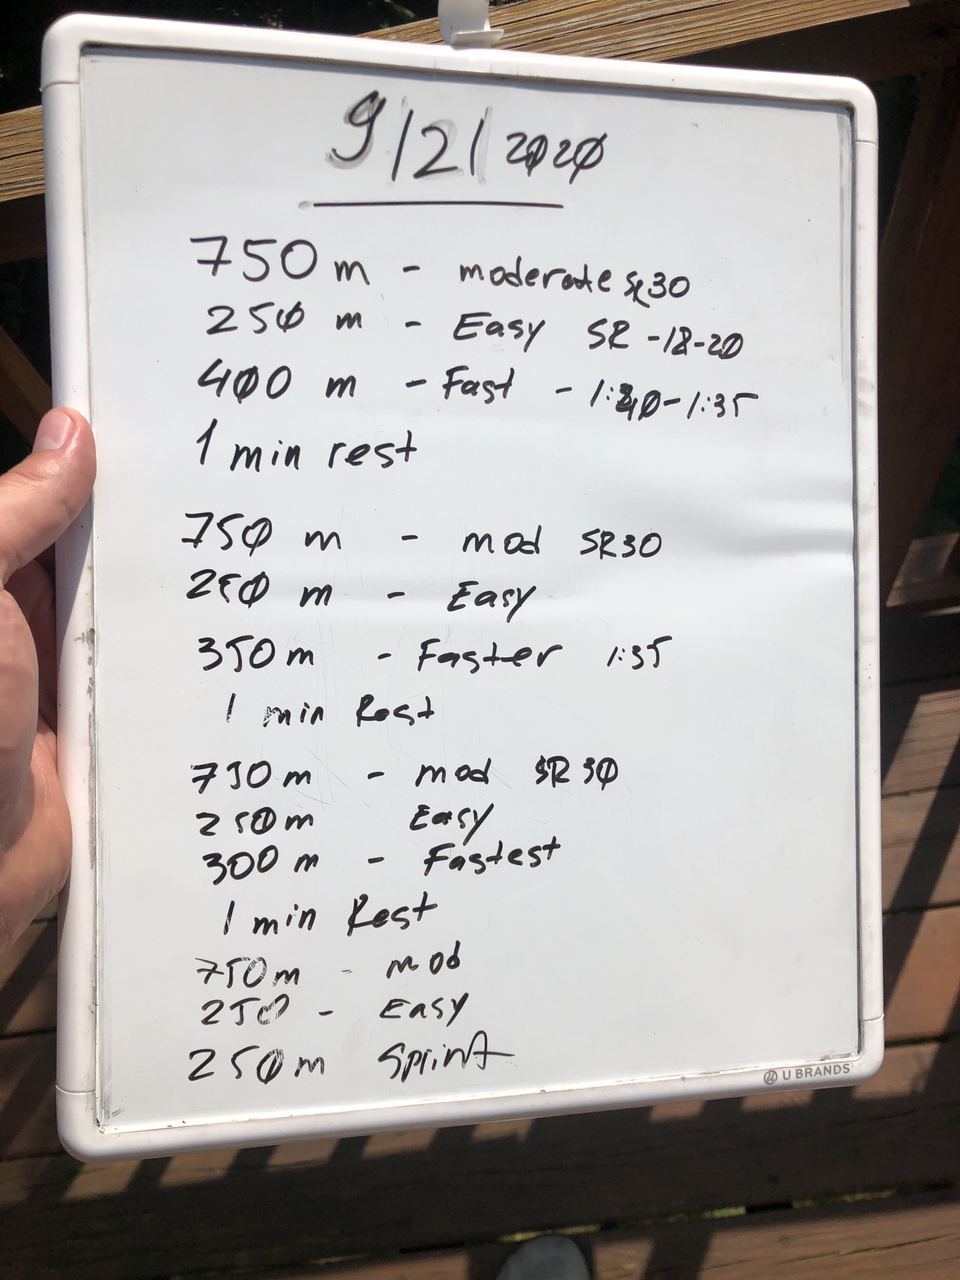 9/2/2020
750 m - moderate SR30
250 m - Easy SR -18-20
400 m - Fast - 1:40-1:35
1 min rest
750 m - mod SR30
250 m - Easy
350 m - Faster 1:35
1 min Rest
750 m - mod SR 30
250 m Easy
300 m - Fastest
1 min Rest
750 m - mod
250 - Easy
250 m Sprint
U BRANDS